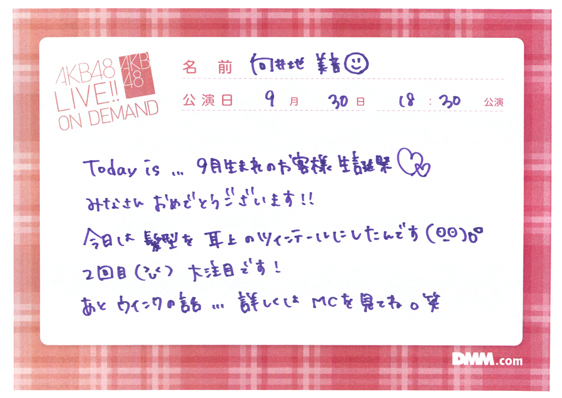 AKB48
LIVE!!
ON DEMAND
AKB
48
名前 向井地 美音
公演日 9月 30日 18:30 公演
Today is ... 9月生まれのお客様生誕祭
みなさん おめでとうございます!!
今日は 髪型を 耳上のツインテールにしたんです
2回目(ふく) 大注目です!
あと ウインクの話 ... 詳しくは MCを見てね。笑
DMM.com